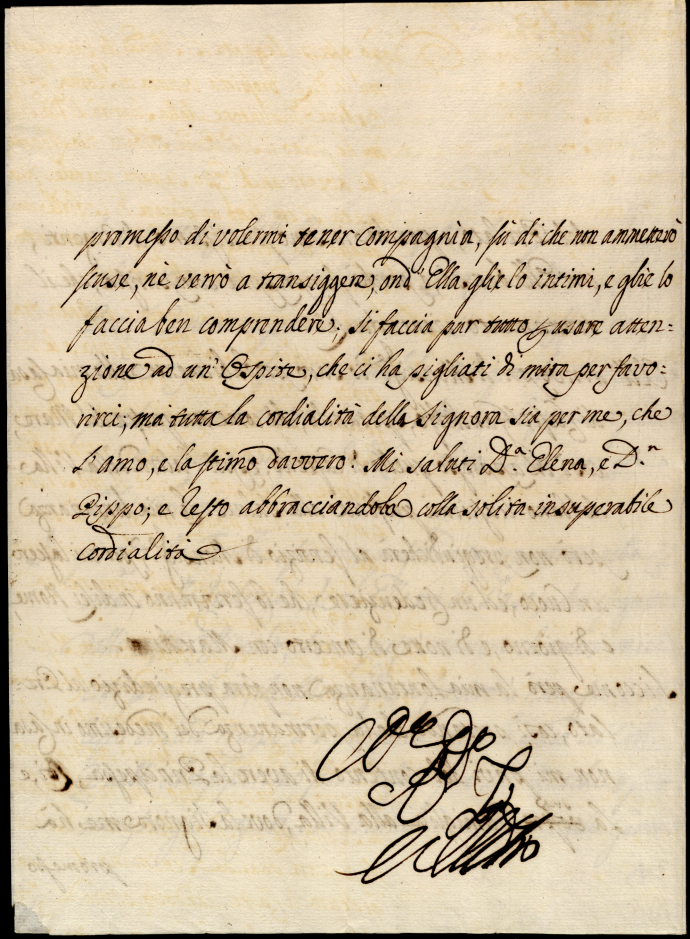 promesso di volermi tener compagnia, sù di che non ammetterò
scuse, nè verrò a transiggere, ond' Ella glie lo intimi, e glie lo
faccia ben comprendere; si faccia pur tutto per usare atten=
zione ad un' Ospite, che ci ha pigliati di mira per favo=
rirci; ma tutta la cordialità della Signora sia per me, che
l'amo, e la stimo davvero. Mi saluti D.a Elena, e D.n
Pippo; e resto abbracciandola colla solita insuperabile
cordialità